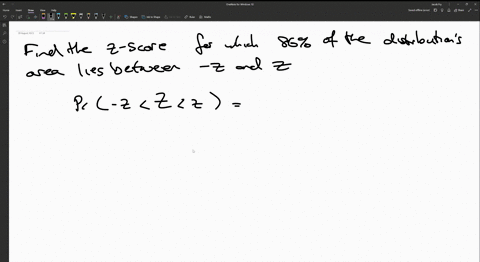 Find the z-score for which 86% of the distribution's
area lies between -z and z
Pr (-z < Z < z) =